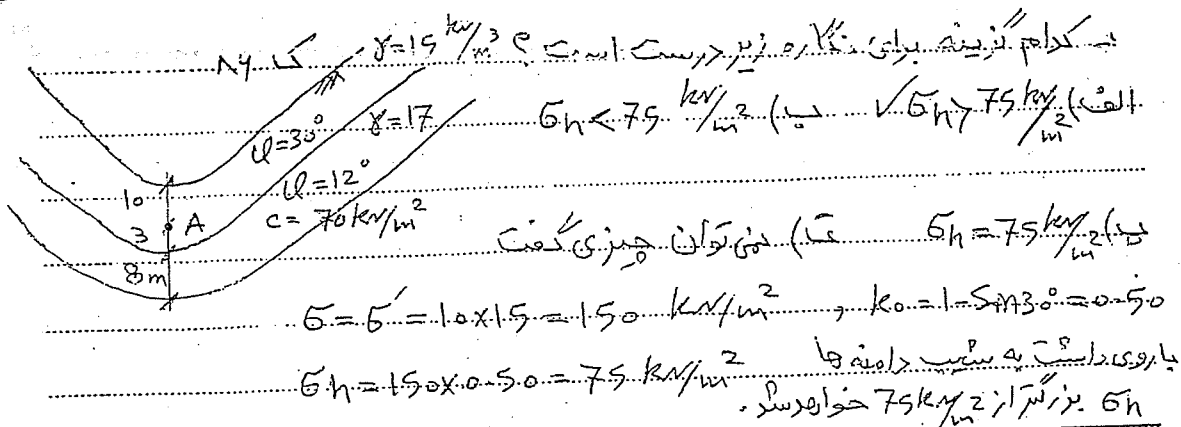 ـ کدام گزینه برای نگاره زیر درست است ؟ γ=15 kN/m³ ک ۸۶
الف) σh > 75 kN/m² ✓ ب) σh < 75 kN/m²
γ=17
φ=30°
φ=12°
c= 70 kN/m²
10
A
3
8m
پ) σh = 75 kN/m² ت) نمی توان چیزی گفت
σ = σ' = 10×15 = 150 kN/m² , k₀ = 1-Sin30° = 0.50
σh = 150×0.50 = 75 kN/m² با روی داشت به شیب دامنه ها
σh بزرگتر از 75 kN/m² خواهد شد .